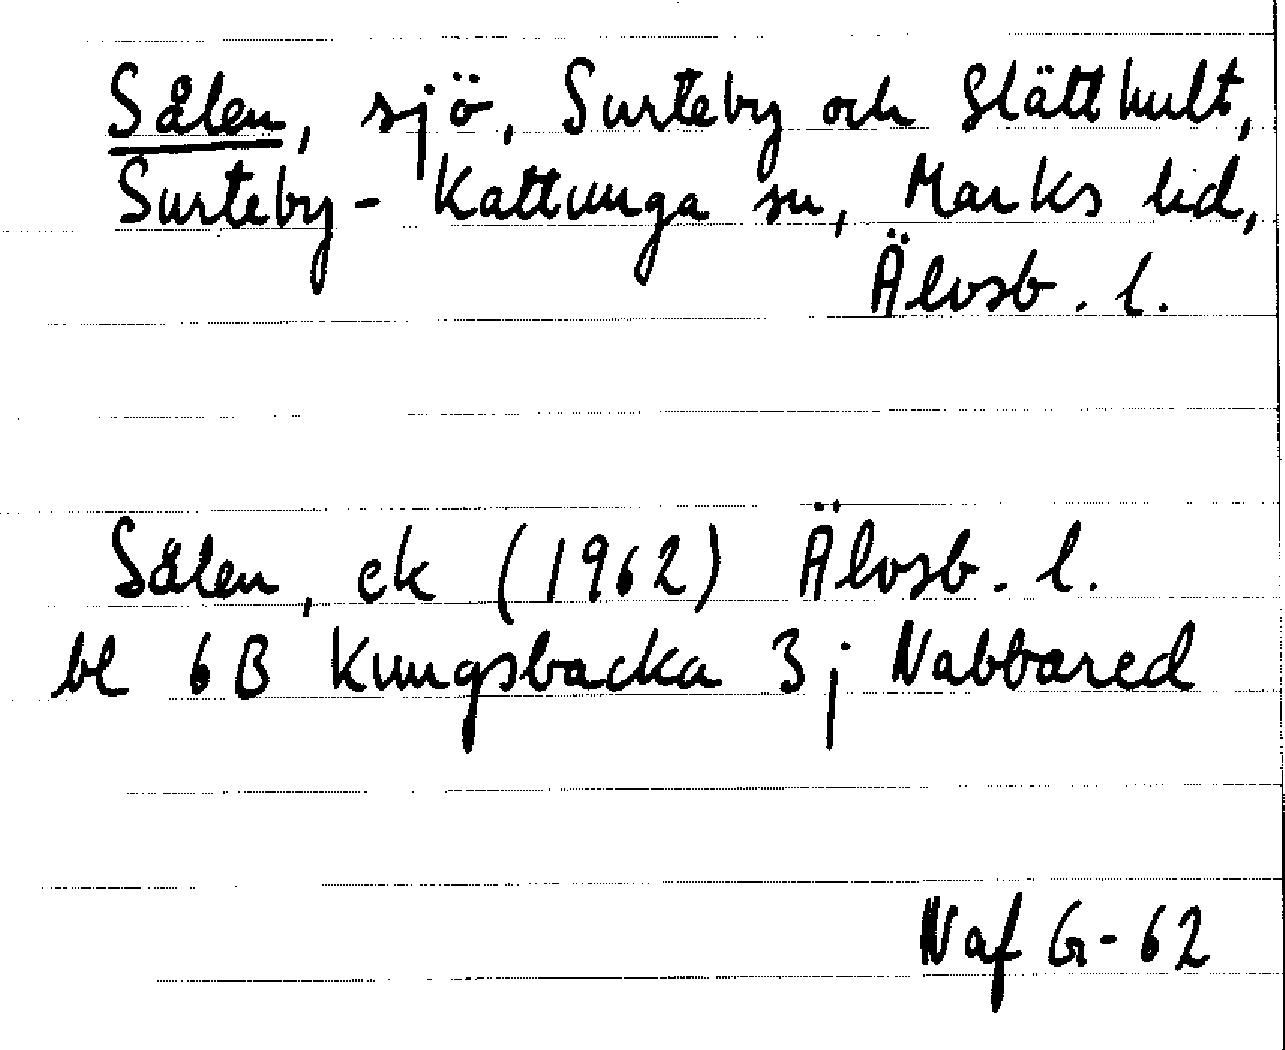 Sålen, sjö, Surteby och Slätthult,
Surteby-Kattunga sn, Marks hd,
Älvsb. l.
Sålen, ek (1962) Älvsb. l.
bl 6B Kungsbacka 3j Nabbared
Naf G-62